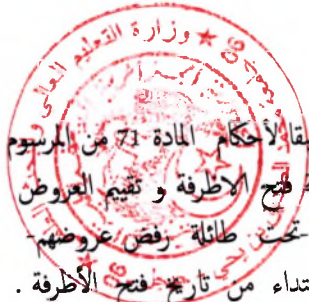 وزارة التعليم العالي
طبقا لأحكام المادة 71 من المرسوم
فتح الاظرفة و تقييم العروض
-تحت طائلة رفض عروضهم-
ابتداء من تاريخ فتح الأظرفة .